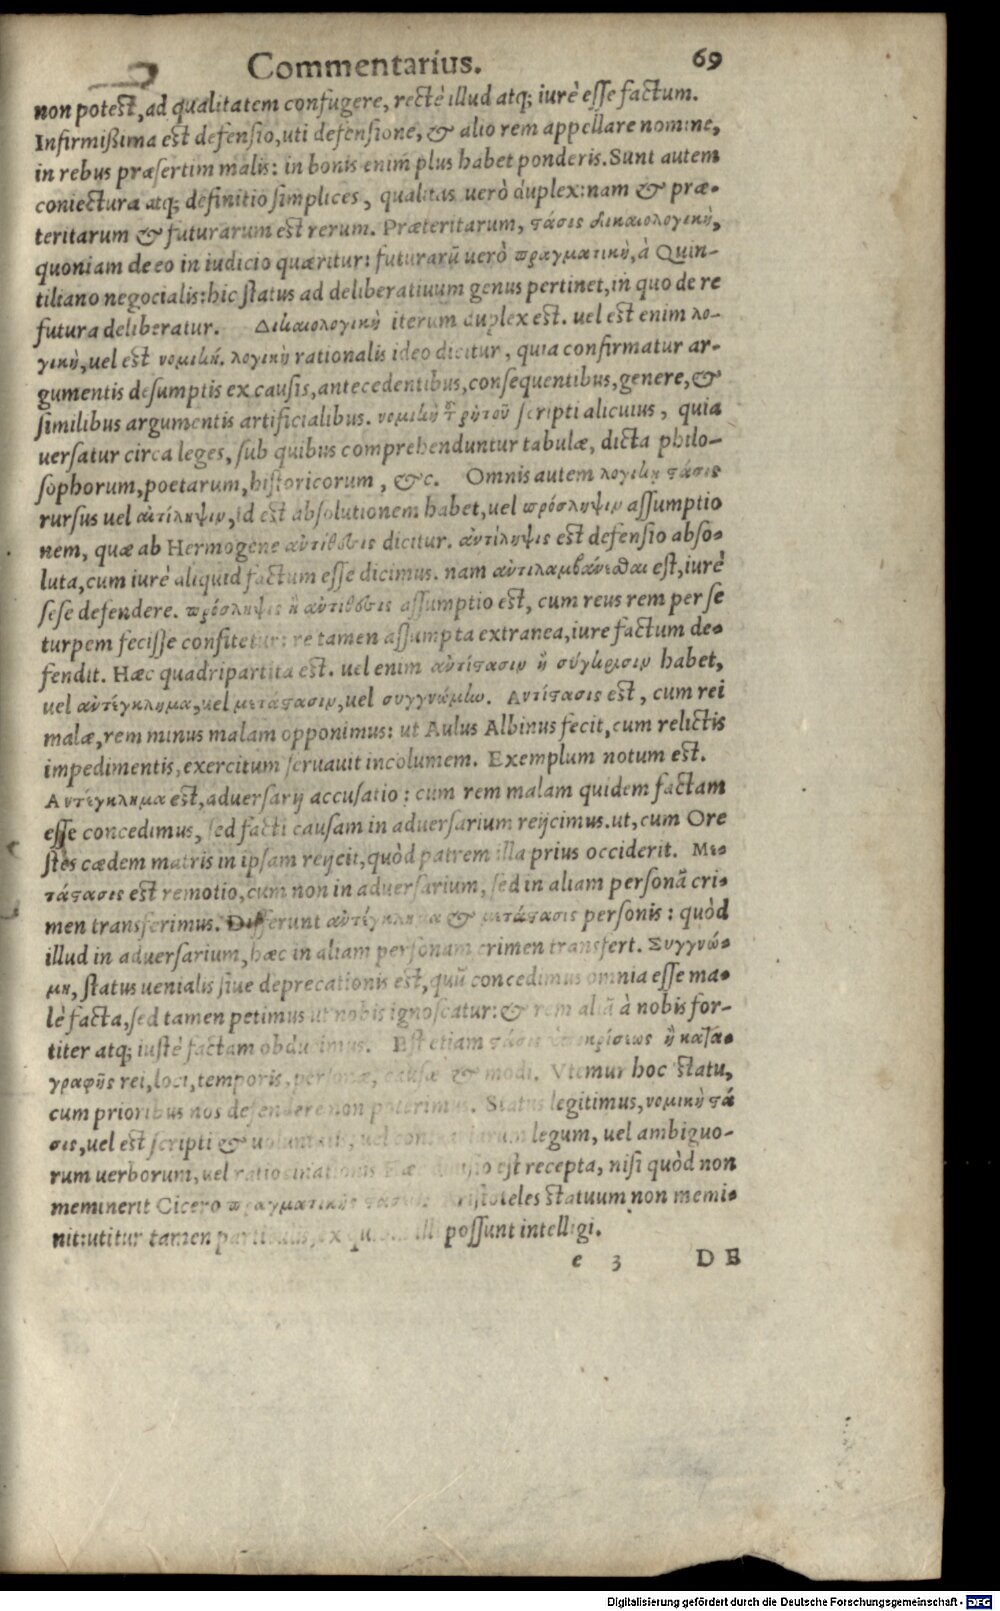 Commentarius. 69
non potest, ad qualitatem confugere, rectè illud atq; iurè esse factum.
Infirmißima est defensio, uti defensione, & alio rem appellare nomine,
in rebus præsertim malis: in bonis enim plus habet ponderis. Sunt autem
coniectura atq; definitio simplices, qualitas uerò duplex: nam & præ-
teritarum & futurarum est rerum. Præteritarum, ϛάσις δικαιολογικὴ,
quoniam de eo in iudicio quæritur: futurarū uerò πραγματικὴ, à Quin-
tiliano negocialis: hic status ad deliberatiuum genus pertinet, in quo de re
futura deliberatur. Δικαιολογικὴ iterum duplex est. uel est enim λο-
γικὴ, uel est νομικὴ. λογικὴ rationalis ideo dicitur, quia confirmatur ar-
gumentis desumptis ex causis, antecedentibus, consequentibus, genere, &
similibus argumentis artificialibus. νομικὴ ῥητοῦ scripti alicuius, quia
uersatur circa leges, sub quibus comprehenduntur tabulæ, dicta philo-
sophorum, poetarum, historicorum, &c. Omnis autem λογικὴ ϛάσις
rursus uel ἀντίληψιν, id est absolutionem habet, uel πρόσληψιν assumptio
nem, quæ ab Hermogene ἀντίθεσις dicitur. ἀντίληψις est defensio abso-
luta, cum iurè aliquid factum esse dicimus. nam ἀντιλαμβάνεσθαι est, iurè
sese defendere. πρόσληψις ἢ ἀντίθεσις assumptio est, cum reus rem per se
turpem fecisse confitetur: re tamen assumpta extranea, iure factum de-
fendit. Hæc quadripartita est. uel enim ἀντίϛασιν ἢ σύγκρισιν habet,
uel ἀντέγκλημα, uel μετάϛασιν, uel συγγνώμην. Ἀντίϛασις est, cum rei
malæ, rem minus malam opponimus: ut Aulus Albinus fecit, cum relictis
impedimentis, exercitum seruauit incolumem. Exemplum notum est.
Ἀντέγκλημα est, aduersarij accusatio: cum rem malam quidem factam
esse concedimus, sed facti causam in aduersarium reijcimus. ut, cum Ore
stes cædem matris in ipsam reijcit, quòd patrem illa prius occiderit. Με-
τάϛασις est remotio, cum non in aduersarium, sed in aliam personā cri-
men transferimus. Differunt ἀντέγκλημα & μετάϛασις personis: quòd
illud in aduersarium, hæc in aliam personam crimen transfert. Συγγνώ-
μη, status uenialis siue deprecationis est, quū concedimus omnia esse ma-
lè facta, sed tamen petimus ut nobis ignoscatur: & rem aliā à nobis for-
titer atq; iustè factam obducimus. Est etiam ϛάσις ὑποκρίσεως ἢ κατα-
γραφῆς rei, loci, temporis, personæ, causæ & modi. Vtemur hoc statu,
cum prioribus nos defendere non poterimus. Status legitimus, νομικὴ ϛά
σις, uel est scripti & uoluntatis, uel contrariarum legum, uel ambiguo-
rum uerborum, uel ratiocinationis Hæc diuisio est recepta, nisi quòd non
meminerit Cicero πραγματικῆς ϛάσεως. Aristoteles statuum non memi-
nit: utitur tamen partibus, ex quibus illi possunt intelligi.
e 3 DE
Digitalisierung gefördert durch die Deutsche Forschungsgemeinschaft - DFG